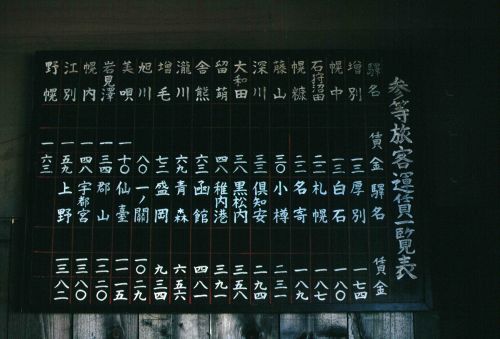 參等旅客運賃一覧表
驛名 賃金 驛名 賃金
増別 一三 厚別 一七四
幌中 一三 白石 一八〇
石狩沼田 二二 札幌 一八七
幌糠 二二 名寄 一八九
藤山 三〇 小樽 二一三
深川 三一 倶知安 二九四
大和田 三八 黒松内 三五八
留萌 四八 稚内港 三九一
舎熊 六三 函館 四八一
瀧川 六九 青森 六五六
増毛 七二 盛岡 九三四
旭川 八〇 一ノ關 一〇二九
美唄 一一〇 仙臺 一一一五
岩見澤 一三四 郡山 一二二〇
幌内 一四八 宇都宮 一三八〇
江別 一五九 上野 一三八二
野幌 一六三